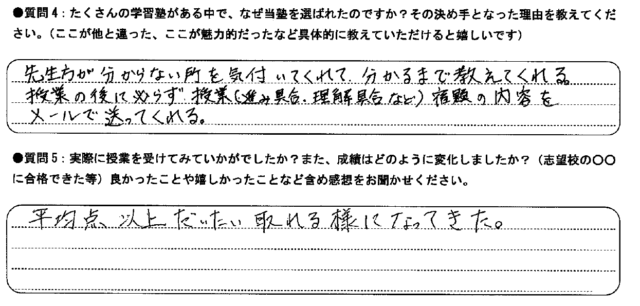 ●質問4：たくさんの学習塾がある中で、なぜ当塾を選ばれたのですか？その決め手となった理由を教えてくだ
さい。（ここが他と違った、ここが魅力的だったなど具体的に教えていただけると嬉しいです）
先生方が分からない所を気付いてくれて、分かるまで教えてくれる。
授業の後に必らず授業（進み具合・理解具合など）宿題の内容を
メールで送ってくれる。
●質問5：実際に授業を受けてみていかがでしたか？また、成績はどのように変化しましたか？（志望校の〇〇
に合格できた等）良かったことや嬉しかったことなど含め感想をお聞かせください。
平均点、以上だいたい取れる様になってきた。